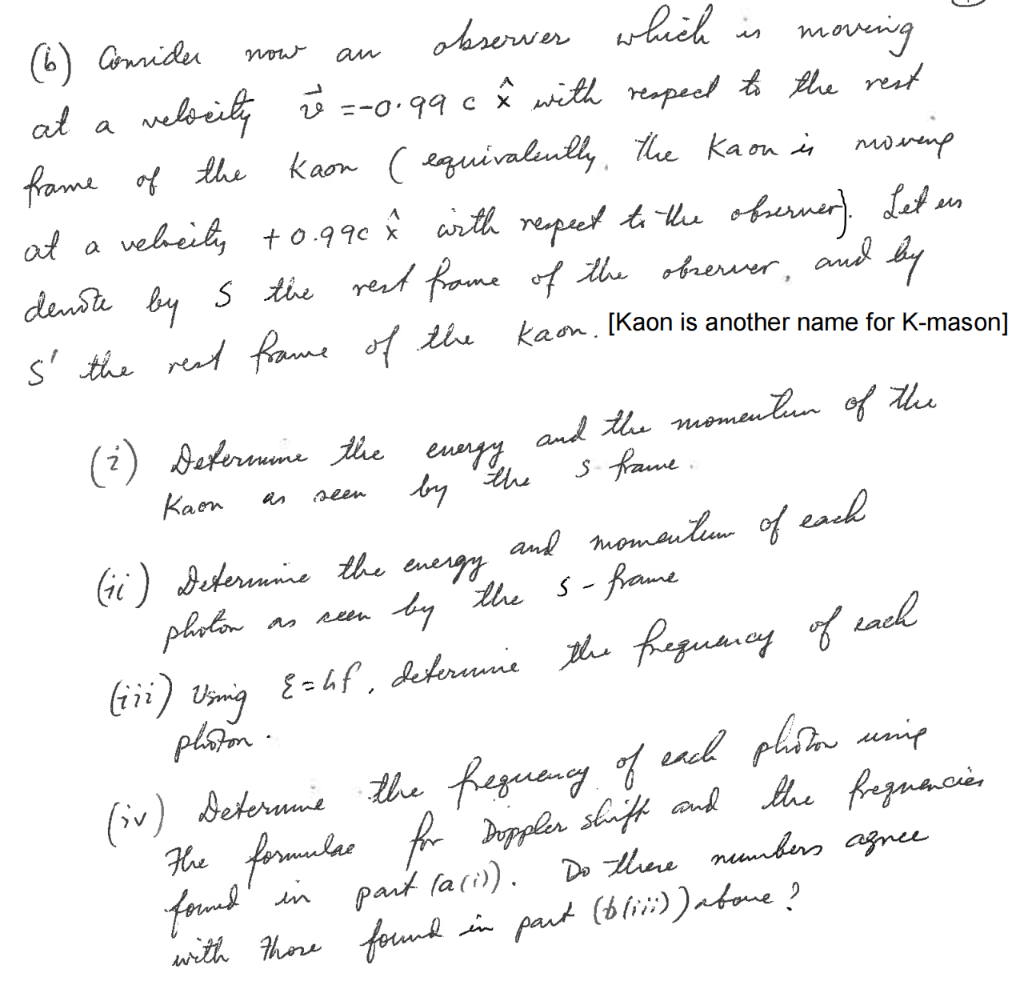 (b) Consider now an observer which is moving
at a velocity v⃗ = -0.99 c x̂ with respect to the rest
frame of the Kaon ( equivalently, the Kaon is moving
at a velocity +0.99c x̂ with respect to the observer). Let us
denote by S the rest frame of the observer, and by
S' the rest frame of the Kaon. [Kaon is another name for K-mason]
(i) Determine the energy and the momentum of the
Kaon as seen by the S-frame.
(ii) Determine the energy and momentum of each
photon as seen by the S-frame
(iii) Using ℰ=hf, determine the frequency of each
photon.
(iv) Determine the frequency of each photon using
the formulae for Doppler shift and the frequencies
found in part (a(i)). Do these numbers agree
with those found in part (b(iii)) above?